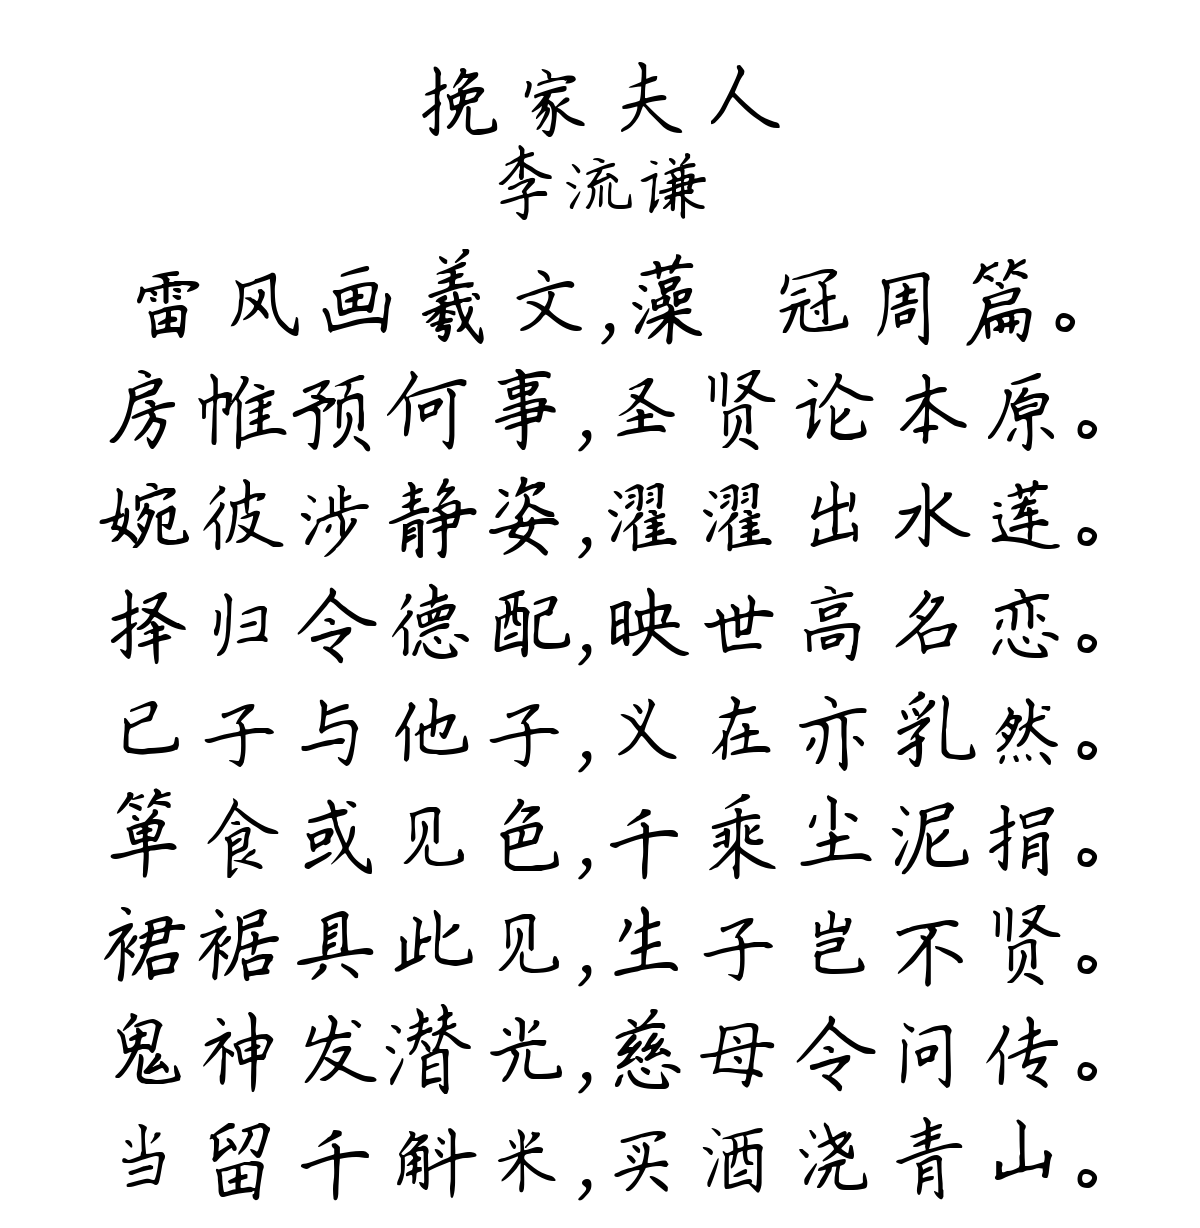 挽家夫人
李流谦
雷风画羲文,藻 冠周篇。
房帷预何事,圣贤论本原。
婉彼涉静姿,濯濯出水莲。
择归令德配,映世高名恋。
已子与他子,义在亦乳然。
箪食或见色,千乘尘泥捐。
裙裾具此见,生子岂不贤。
鬼神发潜光,慈母令问传。
当留千斛米,买酒浇青山。